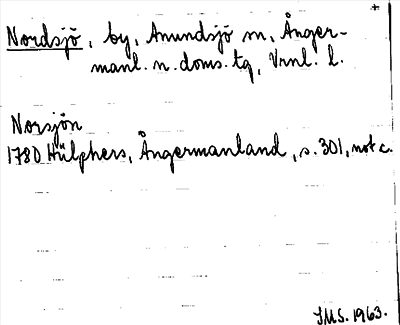 Nordsjö, by, Anundsjö sn, Ånger-
manl. n. doms. tg, Vrnl. l.
Norsjön
1780 Hülphers, Ångermanland, s. 301, not c.
IMS. 1963.